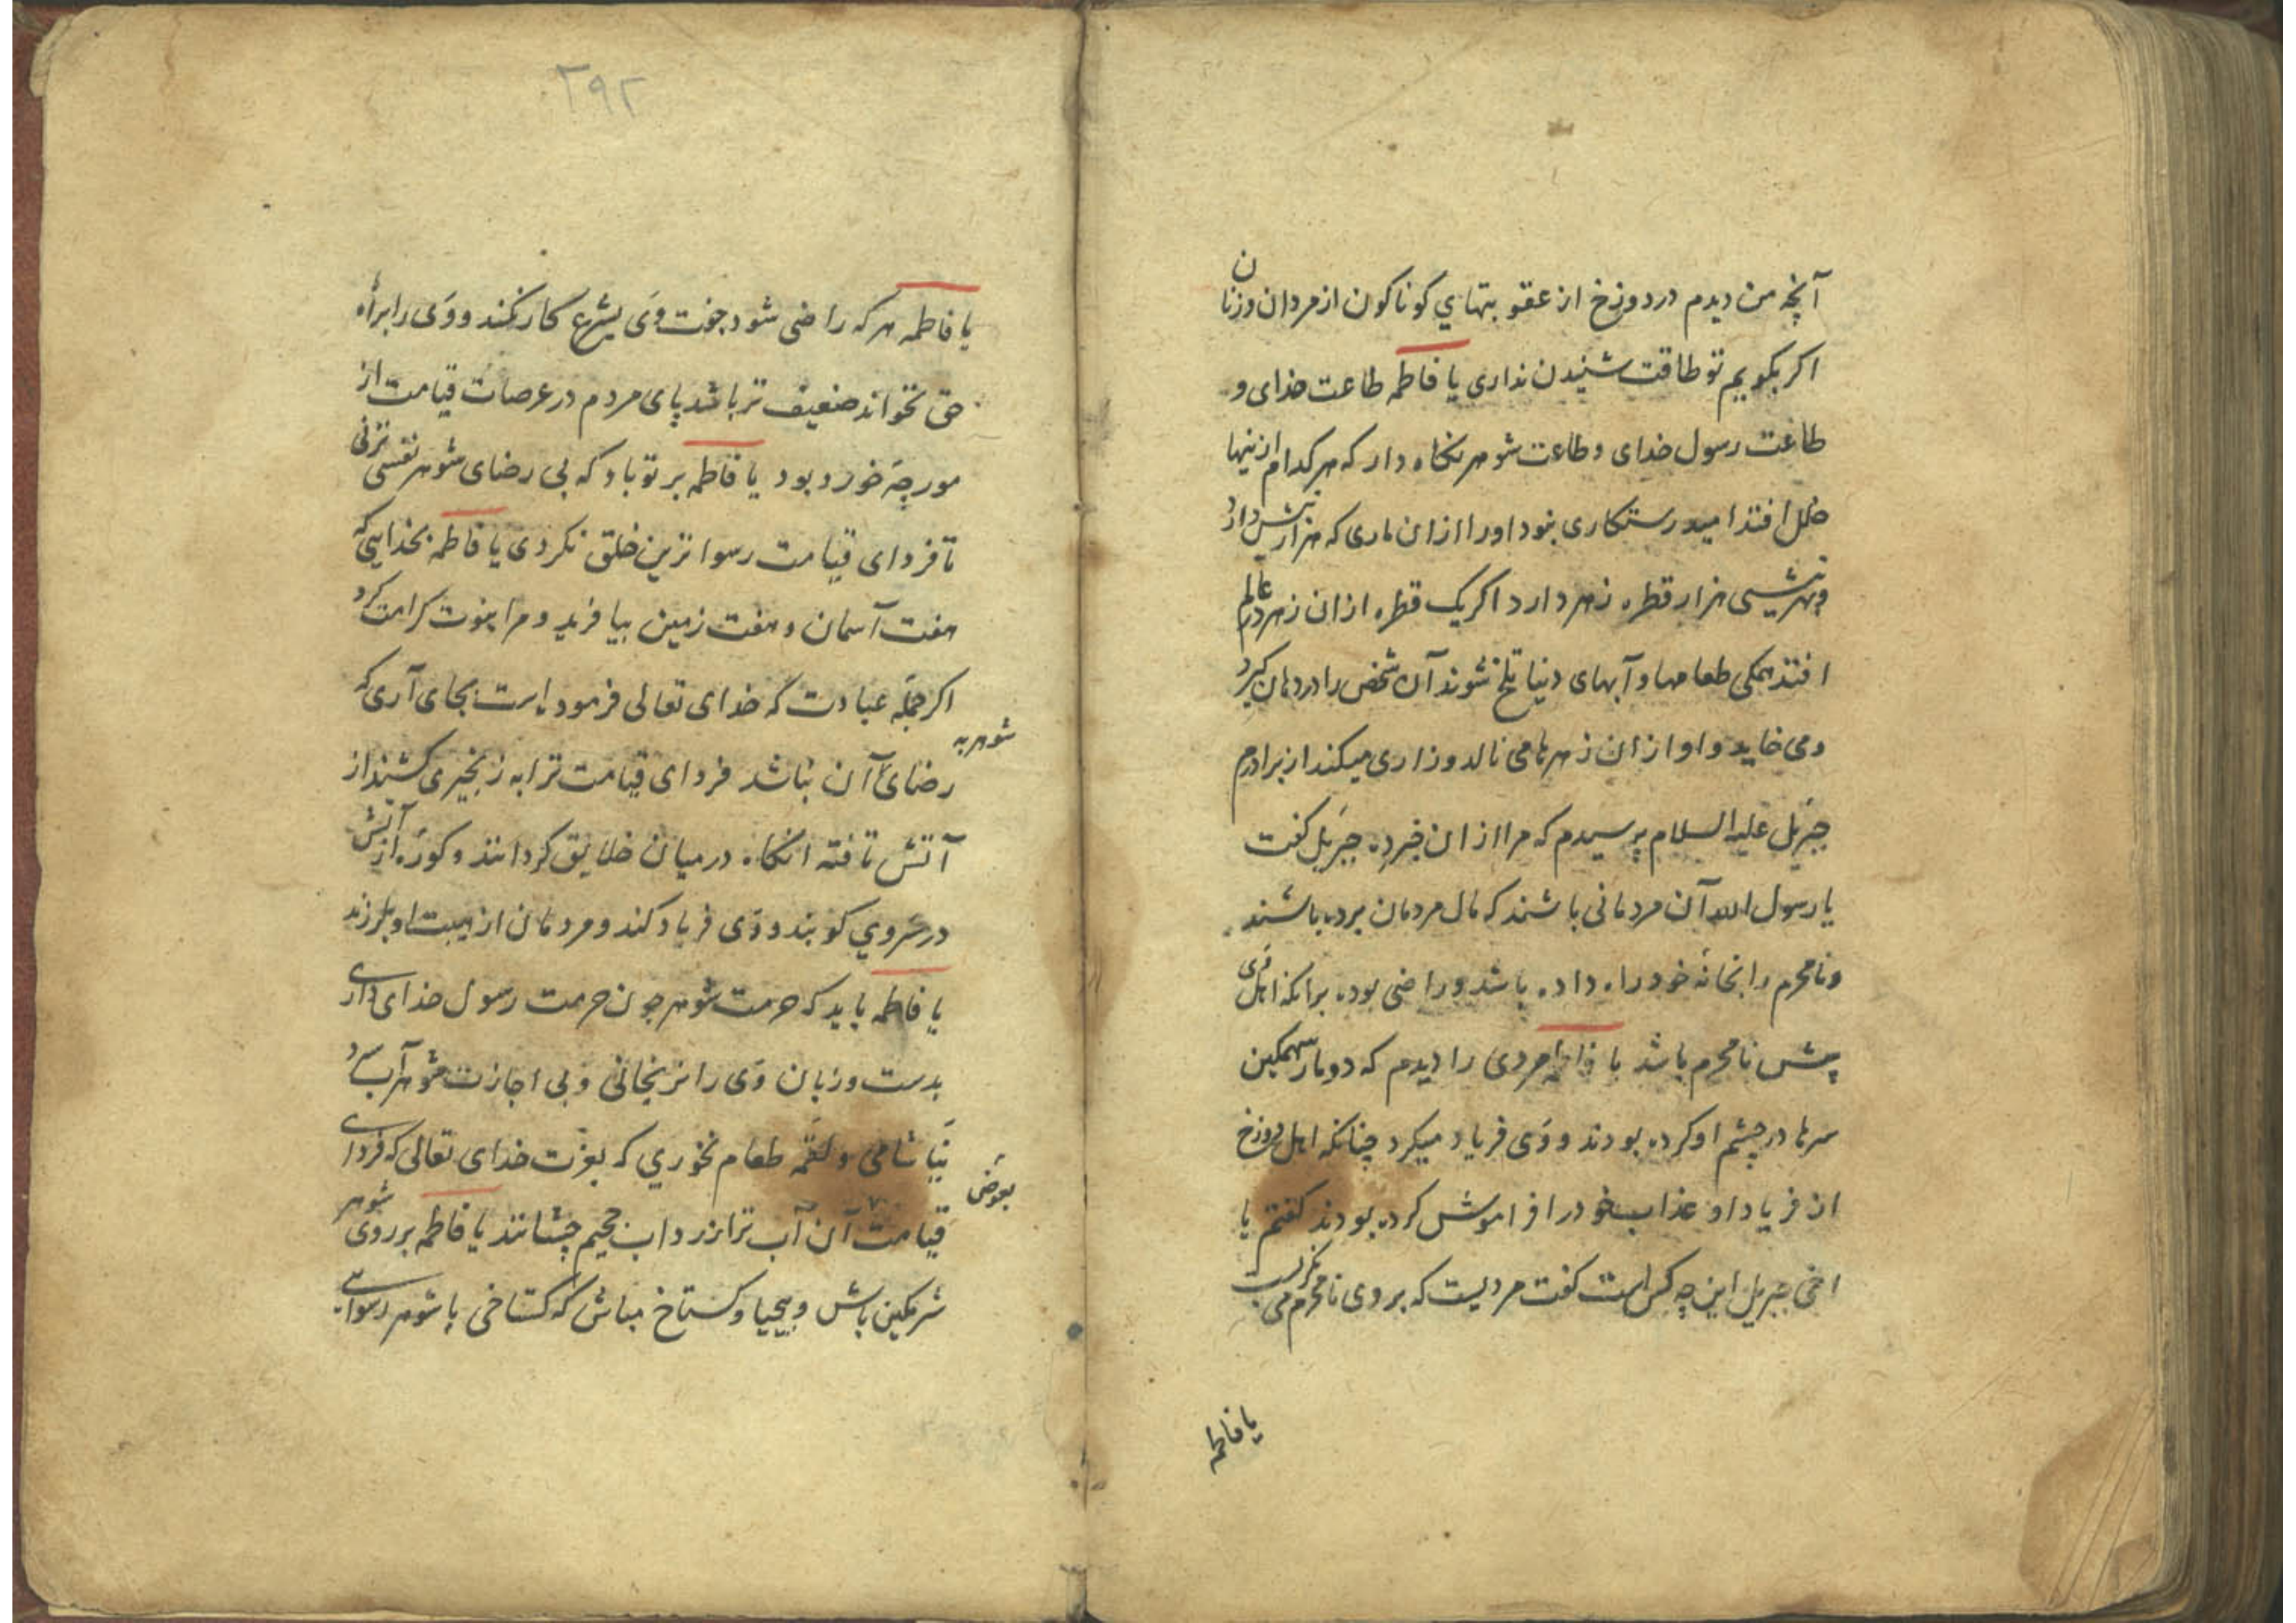 آنچه من دیدم در دوزخ از عقوبتهای کوناکون از مردان وزنان
اکر بکویم تو طاقت شنیدن نداری یا فاطمه طاعت خدای و
طاعت رسول خدای و طاعت شوهر نکاه دار که هر کدام ازینها
خلل افتد امید رستکاری نبود اورا ازان ماری که هزار نیش دارد
و بهر نیشی هزار قطره زهر دارد اکر یک قطره ازان زهر در عالم
افتد همکی طعامها و آبهای دنیا تلخ شوند آن شخص را در دهان کیرد
ومی خاید و او ازان زهرها می نالد وزاری میکند از برادرم
جبرئیل علیه السلام پرسیدم که مرا ازان خبر ده جبرئیل کفت
یا رسول الله آن مردمانی باشند که مال مردمان برده باشند
ونامحرم را بخانه خود راه داده باشد وراضی بوده برانکه اهل وی
پیش نامحرم باشد یا فاطمه مردی را دیدم که دو مار سهمکین
سرها در چشم او کرده بودند و وی فریاد میکرد چنانکه اهل دوزخ
از فریاد او عذاب خودرا فراموش کرده بودند کفتم یا
اخی جبریل این چه کس است کفت مردیست که بروی نامحرم می نکریست
یا فاطمه
۲۹۲
یا فاطمه هر که راضی شود جفت وی بشرع کار نکند و وی را براه
حق نخواند ضعیف تر باشد پای مردم در عرصات قیامت از
مورچه خورد بود یا فاطمه بر تو باد که بی رضای شوهر نفسی نزنی
تا فردای قیامت رسوا ترین خلق نکردی یا فاطمه بخدایی که
هفت آسمان و هفت زمین بیافرید و مرا بنبوت کرامت کرد
اکر جمله عبادت که خدای تعالی فرموده است بجای آری که
شوهر به
رضای آن نباشد فردای قیامت ترا به زنجیری کشند از
آتش تافته انکاه در میان خلایق کردانند و کوزه از آتش
در سر وی کوبند و وی فریاد کند و مردمان از هیبت او بلرزند
یا فاطمه باید که حرمت شوهر چون حرمت رسول خدای داری
بدست وزبان وی را نرنجانی و بی اجازت شوهر آب سرد
نیاشامی و لقمه طعام نخوری که بعزت خدای تعالی که فردای
بعوض
قیامت آن آب ترا زرداب جحیم چشانند یا فاطمه بر روی شوهر
شرمکین باش و بیحیا و کستاخ مباش که کستاخی با شوهر رسوایی